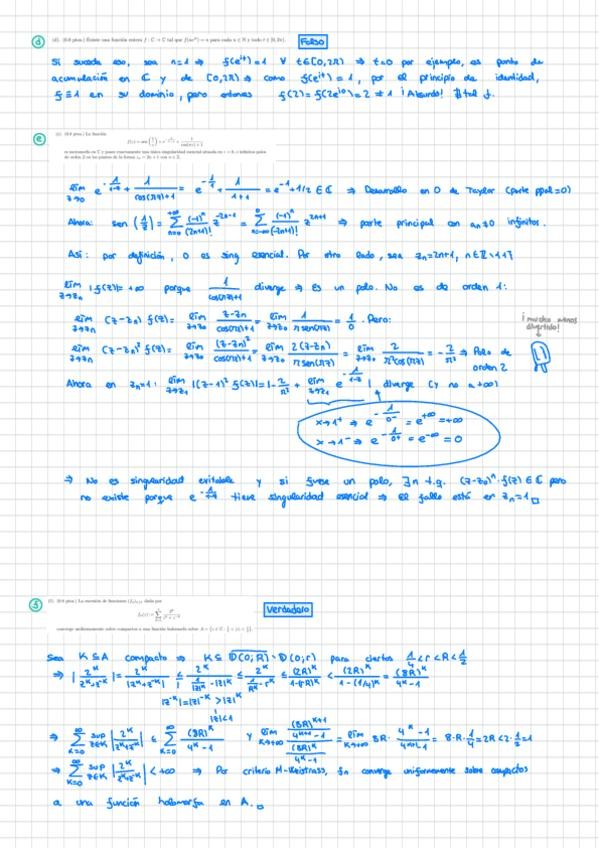 d
(d). (0.8 ptos.) Existe una función entera f : C → C tal que f(ne^{it}) = n para cada n ∈ N y todo t ∈ [0, 2π).
FALSO
Si sucede eso, sea n=1 ⇒ f(e^{it})=1 ∀ t∈[0,2π) ⇒ t=0 por ejemplo, es punto de
acumulación en ℂ y de [0,2π) ⇒ como f(e^{it})=1, por el principio de identidad,
f≡1 en su dominio, pero entonces f(2)=f(2e^{i0})=2≠1 ¡Absurdo!
e
(e). (0.8 ptos.) La función
es meromorfa en C y posee exactamente una única singularidad esencial situada en z = 0, e infinitos polos
de orden 2 en los puntos de la forma z_n = 2n + 1 con n ∈ Z.
lím z→0 e^{-1/(1-z)} + 1/(cos(πz)+1) = e^{-1/1} + 1/(1+1) = e^{-1}+1/2 ∈ ℂ ⇒ Desarrollo en 0 de Taylor (parte ppal=0)
Ahora: sen(1/z) = ∑_{n=0}^{+∞} (-1)^n/(2n+1)! z^{-2n-1} = ∑_{n=-∞}^{0} (-1)^n/(-2n+1)! z^{2n+1} ⇒ parte principal con a_n≠0 infinitos.
Así: por definición, 0 es sing esencial. Por otro lado, sea z_n=2n+1, n∈ℤ\{1}
lím z→z_n |f(z)|=+∞ porque 1/(cos(πz)+1) diverge ⇒ Es un polo. No es de orden 1:
lím z→z_n (z-z_n) f(z) = lím z→z_n (z-z_n)/(cos(πz)+1) = lím z→z_n 1/(π sen(πz)) = 1/0. Pero:
¡mucho menos
divertido!
lím z→z_n (z-z_n)² f(z) = lím z→z_n (z-z_n)²/(cos(πz)+1) = lím z→z_n 2(z-z_n)/(π sen(πz)) = lím z→z_n 2/(π²cos(πz)) = -2/π² ⇒ Polo de
orden 2
Ahora en z_n=1: lím z→z_1 |(z-1)² f(z)| = |-2/π² + lím z→z_1 e^{-1/(1-z)}| diverge (y no a +∞)
x→1⁺ ⇒ e^{-1/0⁻} = e^{+∞} = +∞
x→1⁻ ⇒ e^{-1/0⁺} = e^{-∞} = 0
⇒ No es singularidad evitable y si fuese un polo, ∃n t.q. (z-z_0)^n·f(z)∈ℂ pero
no existe porque e^{-1/(1-z)} tiene singularidad esencial ⇒ El fallo está en z_n=1.
f
(f). (0.8 ptos.) La sucesión de funciones dada por
verdadero
converge uniformemente sobre compactos a una función holomorfa sobre
Sea K⊆A compacto ⇒ K⊆ D(0,R)\D(0,r) para ciertos 1/4<r<R<1/2
⇒ |2^k/(z^k+z^{-k})| = 2^k/|z^k+z^{-k}| ≤ 2^k/(1/|z|^k-|z|^k) ≤ 2^k/(1/R^k-r^k) ≤ (2R)^k/(1-(rR)^k) < (2R)^k/(1-(1/4)^k) = (8R)^k/(4^k-1)
|z^{-k}|=|z|^{-k} > |z|^k
|z|<1
⇒ ∑_{k=0}^{∞} sup_{z∈K} |2^k/(z^k+z^{-k})| ≤ ∑_{k=0}^{∞} (8R)^k/(4^k-1) y lím k→+∞ ((8R)^{k+1}/(4^{k+1}-1))/((8R)^k/(4^k-1)) = lím k→+∞ 8R·(4^k-1)/(4^{k+1}-1) = 8·R·1/4=2R<2·1/2=1
⇒ ∑_{k=0}^{∞} sup_{z∈K} |2^k/(z^k+z^{-k})| < +∞ ⇒ Por criterio M-Weistrass, fn converge uniformemente sobre compactos
a una función holomorfa en A.